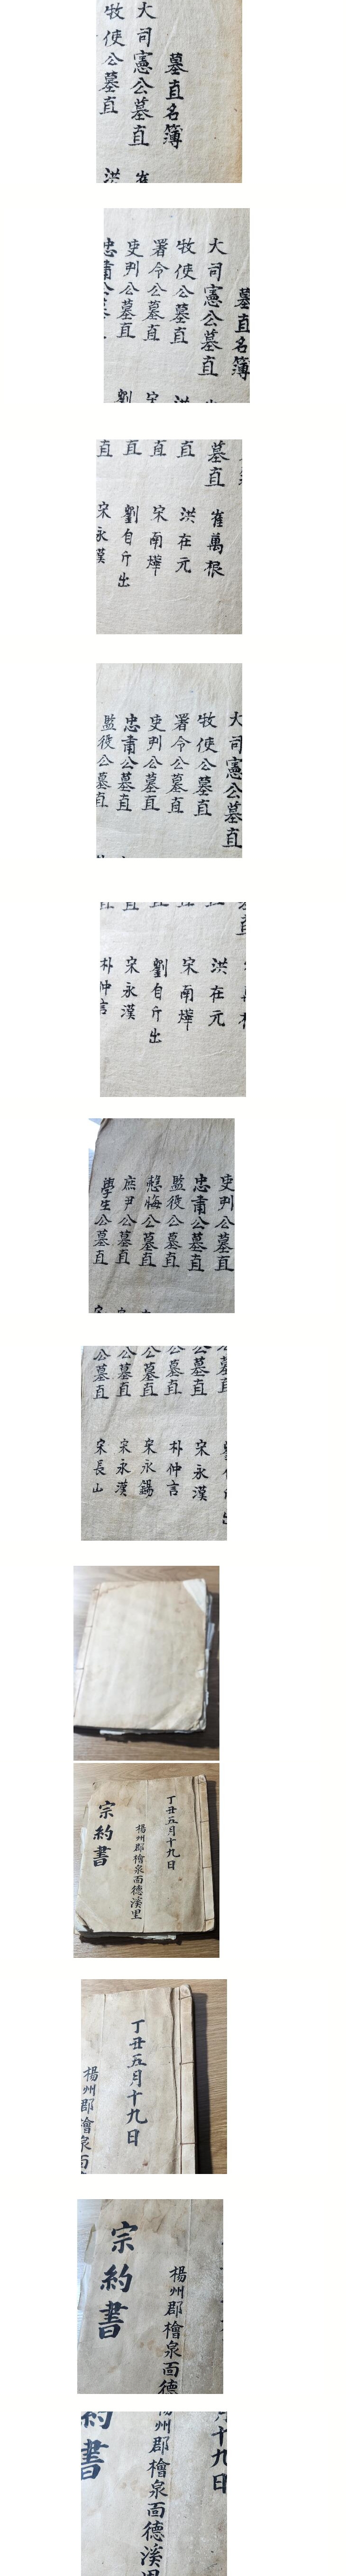 墓直名簿
大司憲公墓直
牧使公墓直 洪
墓直名簿
大司憲公墓直
牧使公墓直
署令公墓直
吏判公墓直
忠肅公墓
墓直 崔萬根
直 洪在元
直 宋南燁
直 劉自斤出
直 宋永漢
大司憲公墓直
牧使公墓直
署令公墓直
吏判公墓直
忠肅公墓直
監役公墓直
洪在元
宋南燁
劉自斤出
宋永漢
朴仲言
吏判公墓直
忠肅公墓直
監役公墓直
公墓直
庶尹公墓直
學生公墓直
公墓直 宋永漢
公墓直 朴仲言
公墓直 宋永錫
公墓直 宋永漢
公墓直 宋長山
丁丑五月十九日
楊州郡檜泉面德溪里
宗約書
丁丑五月十九日
楊州郡檜泉面
楊州郡檜泉面德
宗約書
十九日
州郡檜泉面德溪里
約書